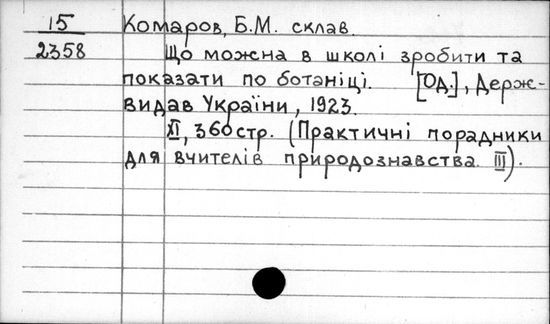 15 Комаров, Б.М. склав.
2358 Що можна в школі зробити та
показати по ботаніці. [Од.], Держ-
видав України, 1923.
XI, 360 стр. (Практичні порадники
для вчителів природознавства. III).